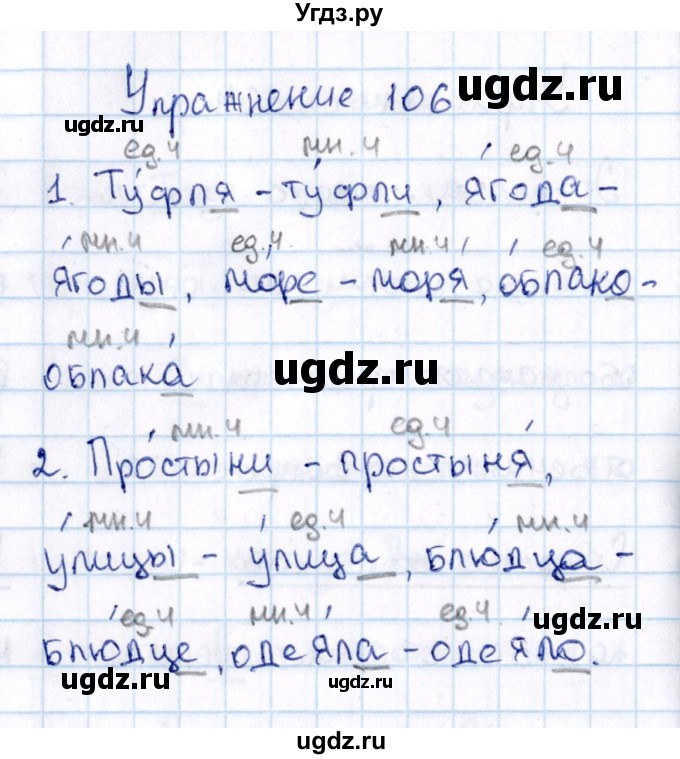 Угдз.ру
Упражнение 106 ugdz.ru
ugdz.ru
ед.ч мн.ч ед.ч
1. Ту́фля - ту́фли, я́года -
мн.ч ед.ч. мн.ч ед.ч
я́годы, мо́ре - моря́, о́блако -
мн.ч
облака́ ugdz.ru
мн.ч ед.ч
2. Про́стыни - простыня́,
мн.ч ед.ч мн.ч
у́лицы - у́лица, блю́дца -
ед.ч мн.ч ед.ч ugdz.ru
блю́дце, одея́ла - одея́ло.
ugdz.ru ugdz.ru
ugdz.ru